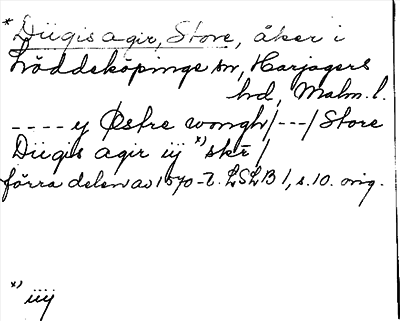 * Diigis agir, Store, åker i
Löddeköpinge sn, Harjagers
hd, Malm. l.
---- y Østre wongh/---/Store
Diigis agir iij *) skr/
förra delen av 1570-t. LSLB 1, s. 10. orig.
*) iiij